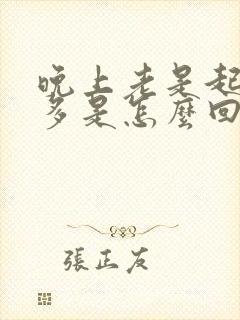 晚上老是起
多是怎麼回
張正友